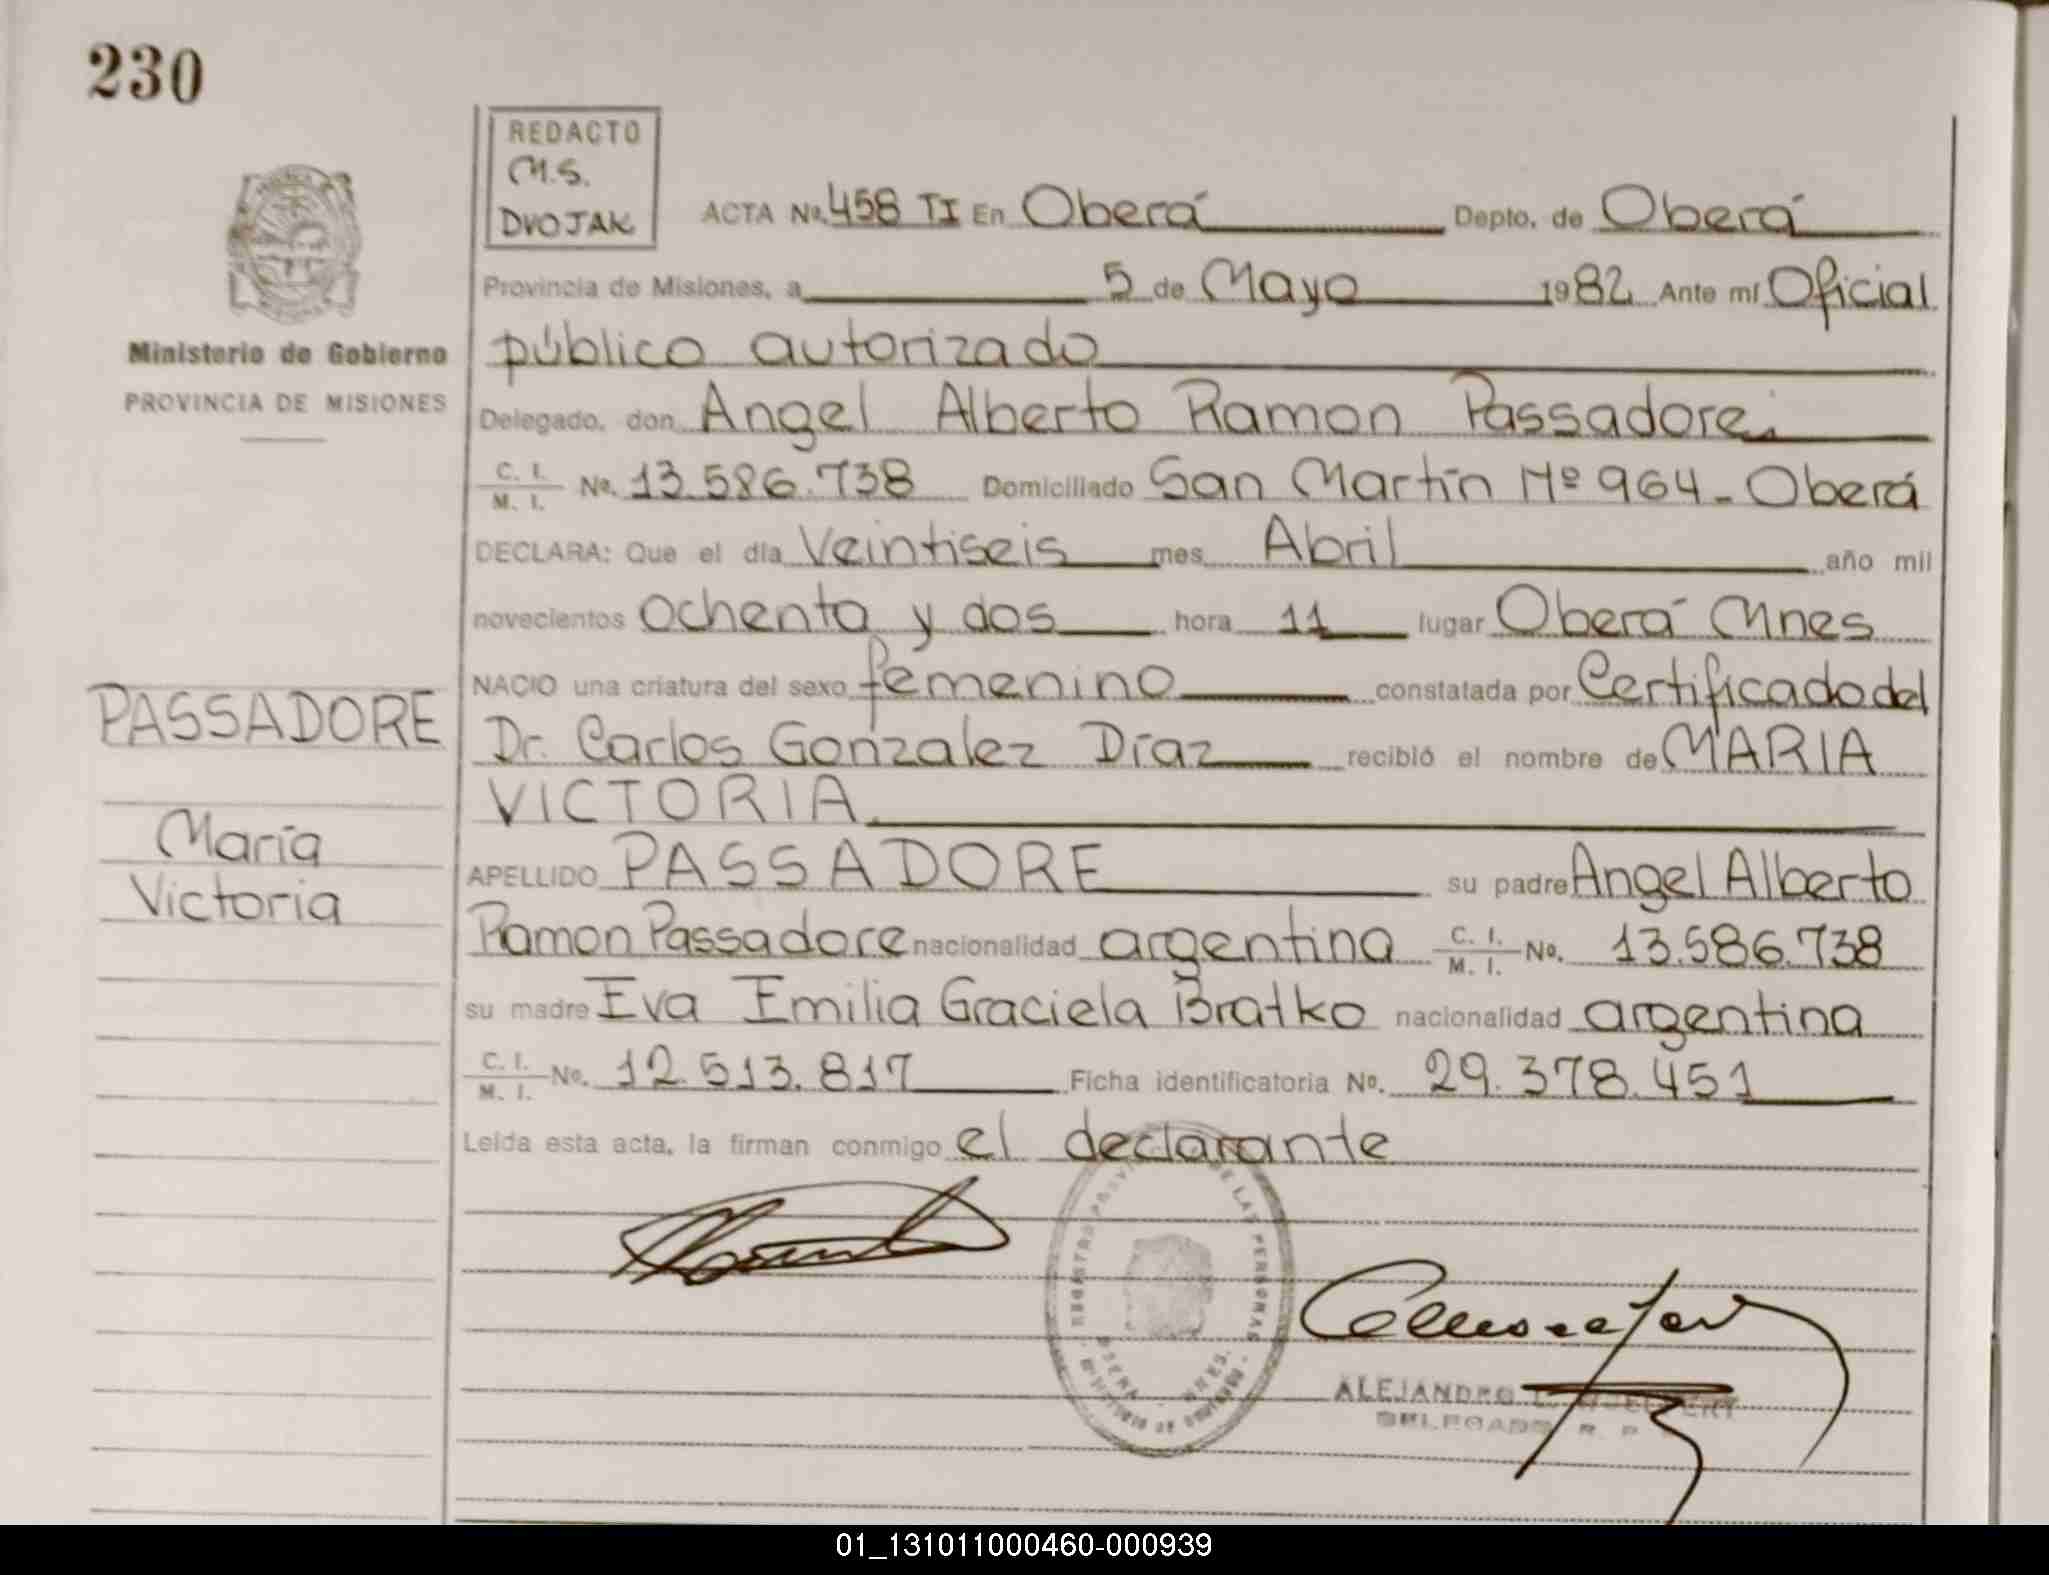 230
REDACTO
M.S.
DVOJAK
ACTA No. 458 TI En Oberá Depto. de Oberá
Provincia de Misiones, a 5 de Mayo 1982 Ante mí Oficial
público autorizado
Ministerio de Gobierno
PROVINCIA DE MISIONES
Delegado, don Angel Alberto Ramon Passadore
C. I.
M. I. No. 13.586.738 Domiciliado San Martín Nº 964 - Oberá
DECLARA: Que el día Veintiseis mes Abril año mil
novecientos Ochenta y dos hora 11 lugar Oberá Mnes
NACIO una criatura del sexo femenino constatada por Certificado del
Dr. Carlos Gonzalez Díaz recibió el nombre de MARIA
VICTORIA
PASSADORE
María
Victoria
APELLIDO PASSADORE su padre Angel Alberto
Ramon Passadore nacionalidad argentina C. I.
M. I. No. 13.586.738
su madre Eva Emilia Graciela Bratko nacionalidad argentina
C. I.
M. I. No. 12.513.817 Ficha identificatoria No. 29.378.451
Leída esta acta, la firman conmigo el declarante
REGISTRO DE LAS PERSONAS
MINISTERIO DE GOBIERNO
OBERA MNES.
ALEJANDRO
DELEGADO R. P.
01_131011000460-000939